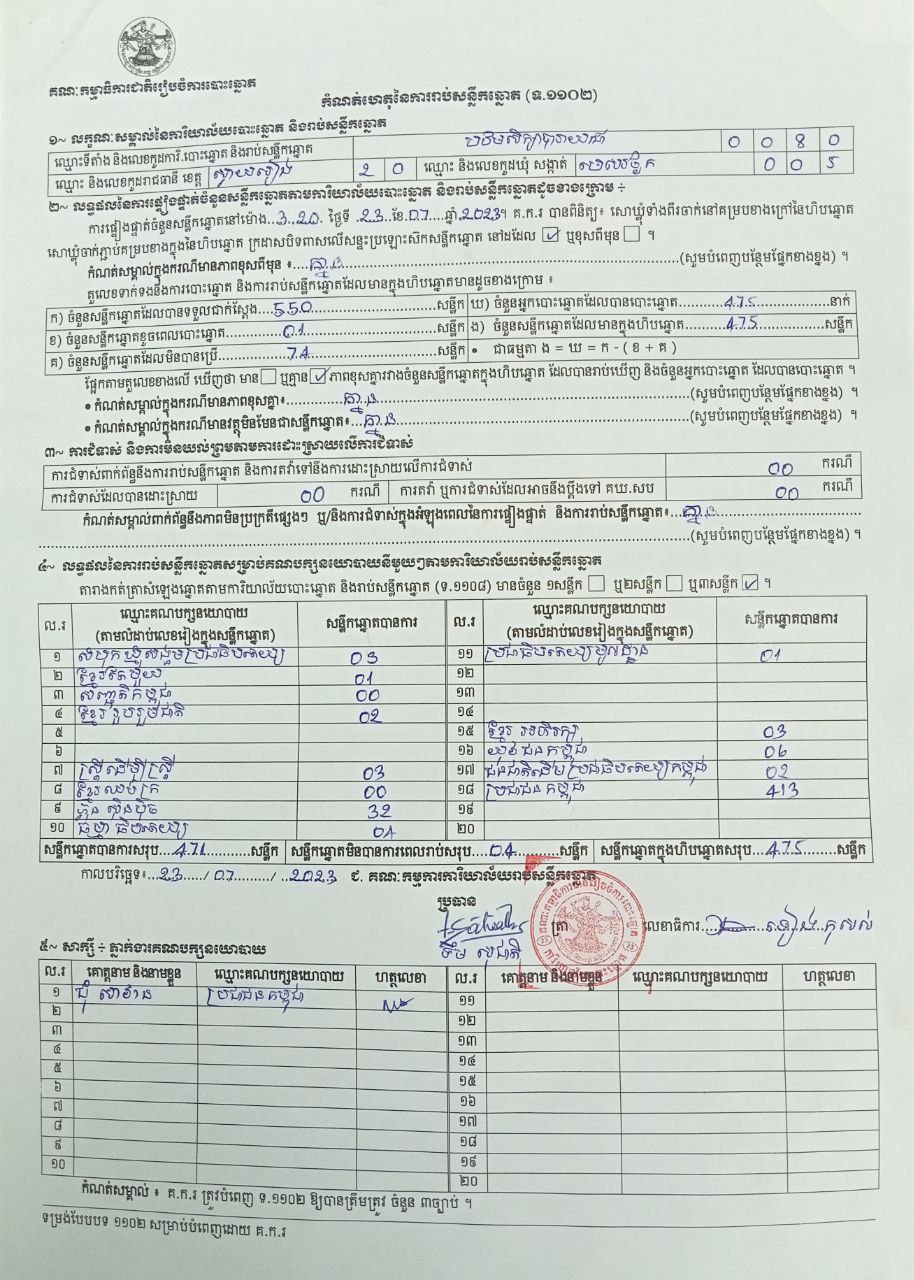 គណៈកម្មាធិការជាតិរៀបចំការបោះឆ្នោត
កំណត់ហេតុនៃការរាប់សន្លឹកឆ្នោត (ទ.១១០២)
១~ លក្ខណៈសម្គាល់នៃការិយាល័យបោះឆ្នោត និងរាប់សន្លឹកឆ្នោត
ឈ្មោះទីតាំង និងលេខកូដការិ.បោះឆ្នោត និងរាប់សន្លឹកឆ្នោត 0 0 8 0
ឈ្មោះ និងលេខកូដរាជធានី ខេត្ត ស្វាយរៀង 2 0 ឈ្មោះ និងលេខកូដឃុំ សង្កាត់ 0 0 5
២~ លទ្ធផលនៃការផ្ទៀងផ្ទាត់ចំនួនសន្លឹកឆ្នោតតាមការិយាល័យបោះឆ្នោត និងរាប់សន្លឹកឆ្នោតដូចខាងក្រោម ÷
ការផ្ទៀងផ្ទាត់ចំនួនសន្លឹកឆ្នោតនៅម៉ោង 3.20 ថ្ងៃទី 23 ខែ 07 ឆ្នាំ 2023។ គ.ក.រ បានពិនិត្យ៖ សោឃ្លុំទាំងពីរចាក់នៅគម្របខាងក្រៅនៃហិបឆ្នោត
សោឃ្លុំចាក់ភ្ជាប់គម្របខាងក្នុងនៃហិបឆ្នោត ក្រដាសបិទពាសលើសន្ទះប្រឡោះស៊កសន្លឹកឆ្នោត នៅដដែល ✓ ឬខុសពីមុន ។
កំណត់សម្គាល់ក្នុងករណីមានភាពខុសពីមុន ៖ គ្មាន (សូមបំពេញបន្ថែមផ្នែកខាងខ្នង) ។
តួលេខទាក់ទងនឹងការបោះឆ្នោត និងការរាប់សន្លឹកឆ្នោតដែលមានក្នុងហិបឆ្នោតមានដូចខាងក្រោម ៖
ក) ចំនួនសន្លឹកឆ្នោតដែលបានទទួលជាក់ស្តែង 550 សន្លឹក ឃ) ចំនួនអ្នកបោះឆ្នោតដែលបានបោះឆ្នោត 475 នាក់
ខ) ចំនួនសន្លឹកឆ្នោតខូចពេលបោះឆ្នោត 01 សន្លឹក ង) ចំនួនសន្លឹកឆ្នោតដែលមានក្នុងហិបឆ្នោត 475 សន្លឹក
គ) ចំនួនសន្លឹកឆ្នោតដែលមិនបានប្រើ 74 សន្លឹក • ជាធម្មតា ង = ឃ = ក - ( ខ + គ )
ផ្អែកតាមតួលេខខាងលើ ឃើញថា មាន ឬគ្មាន ✓ ភាពខុសគ្នារវាងចំនួនសន្លឹកឆ្នោតក្នុងហិបឆ្នោត ដែលបានរាប់ឃើញ និងចំនួនអ្នកបោះឆ្នោត ដែលបានបោះឆ្នោត ។
• កំណត់សម្គាល់ក្នុងករណីមានភាពខុសគ្នា៖ គ្មាន (សូមបំពេញបន្ថែមផ្នែកខាងខ្នង) ។
• កំណត់សម្គាល់ក្នុងករណីមានវត្ថុមិនមែនជាសន្លឹកឆ្នោត៖ គ្មាន (សូមបំពេញបន្ថែមផ្នែកខាងខ្នង) ។
៣~ ការជំទាស់ និងការមិនយល់ព្រមតាមការដោះស្រាយលើការជំទាស់
ការជំទាស់ពាក់ព័ន្ធនឹងការរាប់សន្លឹកឆ្នោត និងការតវ៉ាទៅនឹងការដោះស្រាយលើការជំទាស់ 00 ករណី
ការជំទាស់ដែលបានដោះស្រាយ 00 ករណី ការតវ៉ា ឬការជំទាស់ដែលអាចនឹងប្តឹងទៅ គឃ.សប 00 ករណី
កំណត់សម្គាល់ពាក់ព័ន្ធនឹងភាពមិនប្រក្រតីផ្សេងៗ ឬ/និងការជំទាស់ក្នុងអំឡុងពេលនៃការផ្ទៀងផ្ទាត់ និងការរាប់សន្លឹកឆ្នោត៖ គ្មាន
(សូមបំពេញបន្ថែមផ្នែកខាងខ្នង) ។
៤~ លទ្ធផលនៃការរាប់សន្លឹកឆ្នោតសម្រាប់គណបក្សនយោបាយនីមួយៗតាមការិយាល័យរាប់សន្លឹកឆ្នោត
តារាងកត់ត្រាសំឡេងឆ្នោតតាមការិយាល័យបោះឆ្នោត និងរាប់សន្លឹកឆ្នោត (ទ.១១០៨) មានចំនួន ១សន្លឹក ឬ២សន្លឹក ឬ៣សន្លឹក ✓ ។
ល.រ ឈ្មោះគណបក្សនយោបាយ (តាមលំដាប់លេខរៀងក្នុងសន្លឹកឆ្នោត) សន្លឹកឆ្នោតបានការ ល.រ ឈ្មោះគណបក្សនយោបាយ (តាមលំដាប់លេខរៀងក្នុងសន្លឹកឆ្នោត) សន្លឹកឆ្នោតបានការ
១ សំបុកឃ្មុំសង្គមប្រជាធិបតេយ្យ 03 ១១ ប្រជាធិបតេយ្យមូលដ្ឋាន 01
២ ខ្មែរតែមួយ 01 ១២
៣ សញ្ជាតិកម្ពុជា 00 ១៣
៤ ខ្មែររួបរួមជាតិ 02 ១៤
៥ ១៥ ខ្មែរអភិរក្ស 03
៦ ១៦ យុវជនកម្ពុជា 06
៧ ស្ត្រីដើម្បីស្ត្រី 03 ១៧ ជនជាតិដើមប្រជាធិបតេយ្យកម្ពុជា 02
៨ ខ្មែរឈប់ក្រ 00 ១៨ ប្រជាជនកម្ពុជា 413
៩ ហ៊្វុនស៊ិនប៉ិច 32 ១៩
១០ ធម្មាធិបតេយ្យ 04 ២០
សន្លឹកឆ្នោតបានការសរុប 471 សន្លឹក សន្លឹកឆ្នោតមិនបានការពេលរាប់សរុប 04 សន្លឹក សន្លឹកឆ្នោតក្នុងហិបឆ្នោតសរុប 475 សន្លឹក
កាលបរិច្ឆេទ៖ 23 / 07 / 2023 ជ. គណៈកម្មការការិយាល័យរាប់សន្លឹកឆ្នោត
ប្រធាន
ត្រា លេខាធិការ
ទឹម សុជាតិ
៥~ សាក្សី ÷ ភ្នាក់ងារគណបក្សនយោបាយ
ល.រ គោត្តនាម និងនាមខ្លួន ឈ្មោះគណបក្សនយោបាយ ហត្ថលេខា ល.រ គោត្តនាម និងនាមខ្លួន ឈ្មោះគណបក្សនយោបាយ ហត្ថលេខា
១ ប្រជាជនកម្ពុជា ១១
២ ១២
៣ ១៣
៤ ១៤
៥ ១៥
៦ ១៦
៧ ១៧
៨ ១៨
៩ ១៩
១០ ២០
កំណត់សម្គាល់ ៖ គ.ក.រ ត្រូវបំពេញ ទ.១១០២ ឱ្យបានត្រឹមត្រូវ ចំនួន ៣ច្បាប់ ។
ទម្រង់បែបបទ ១១០២ សម្រាប់បំពេញដោយ គ.ក.រ